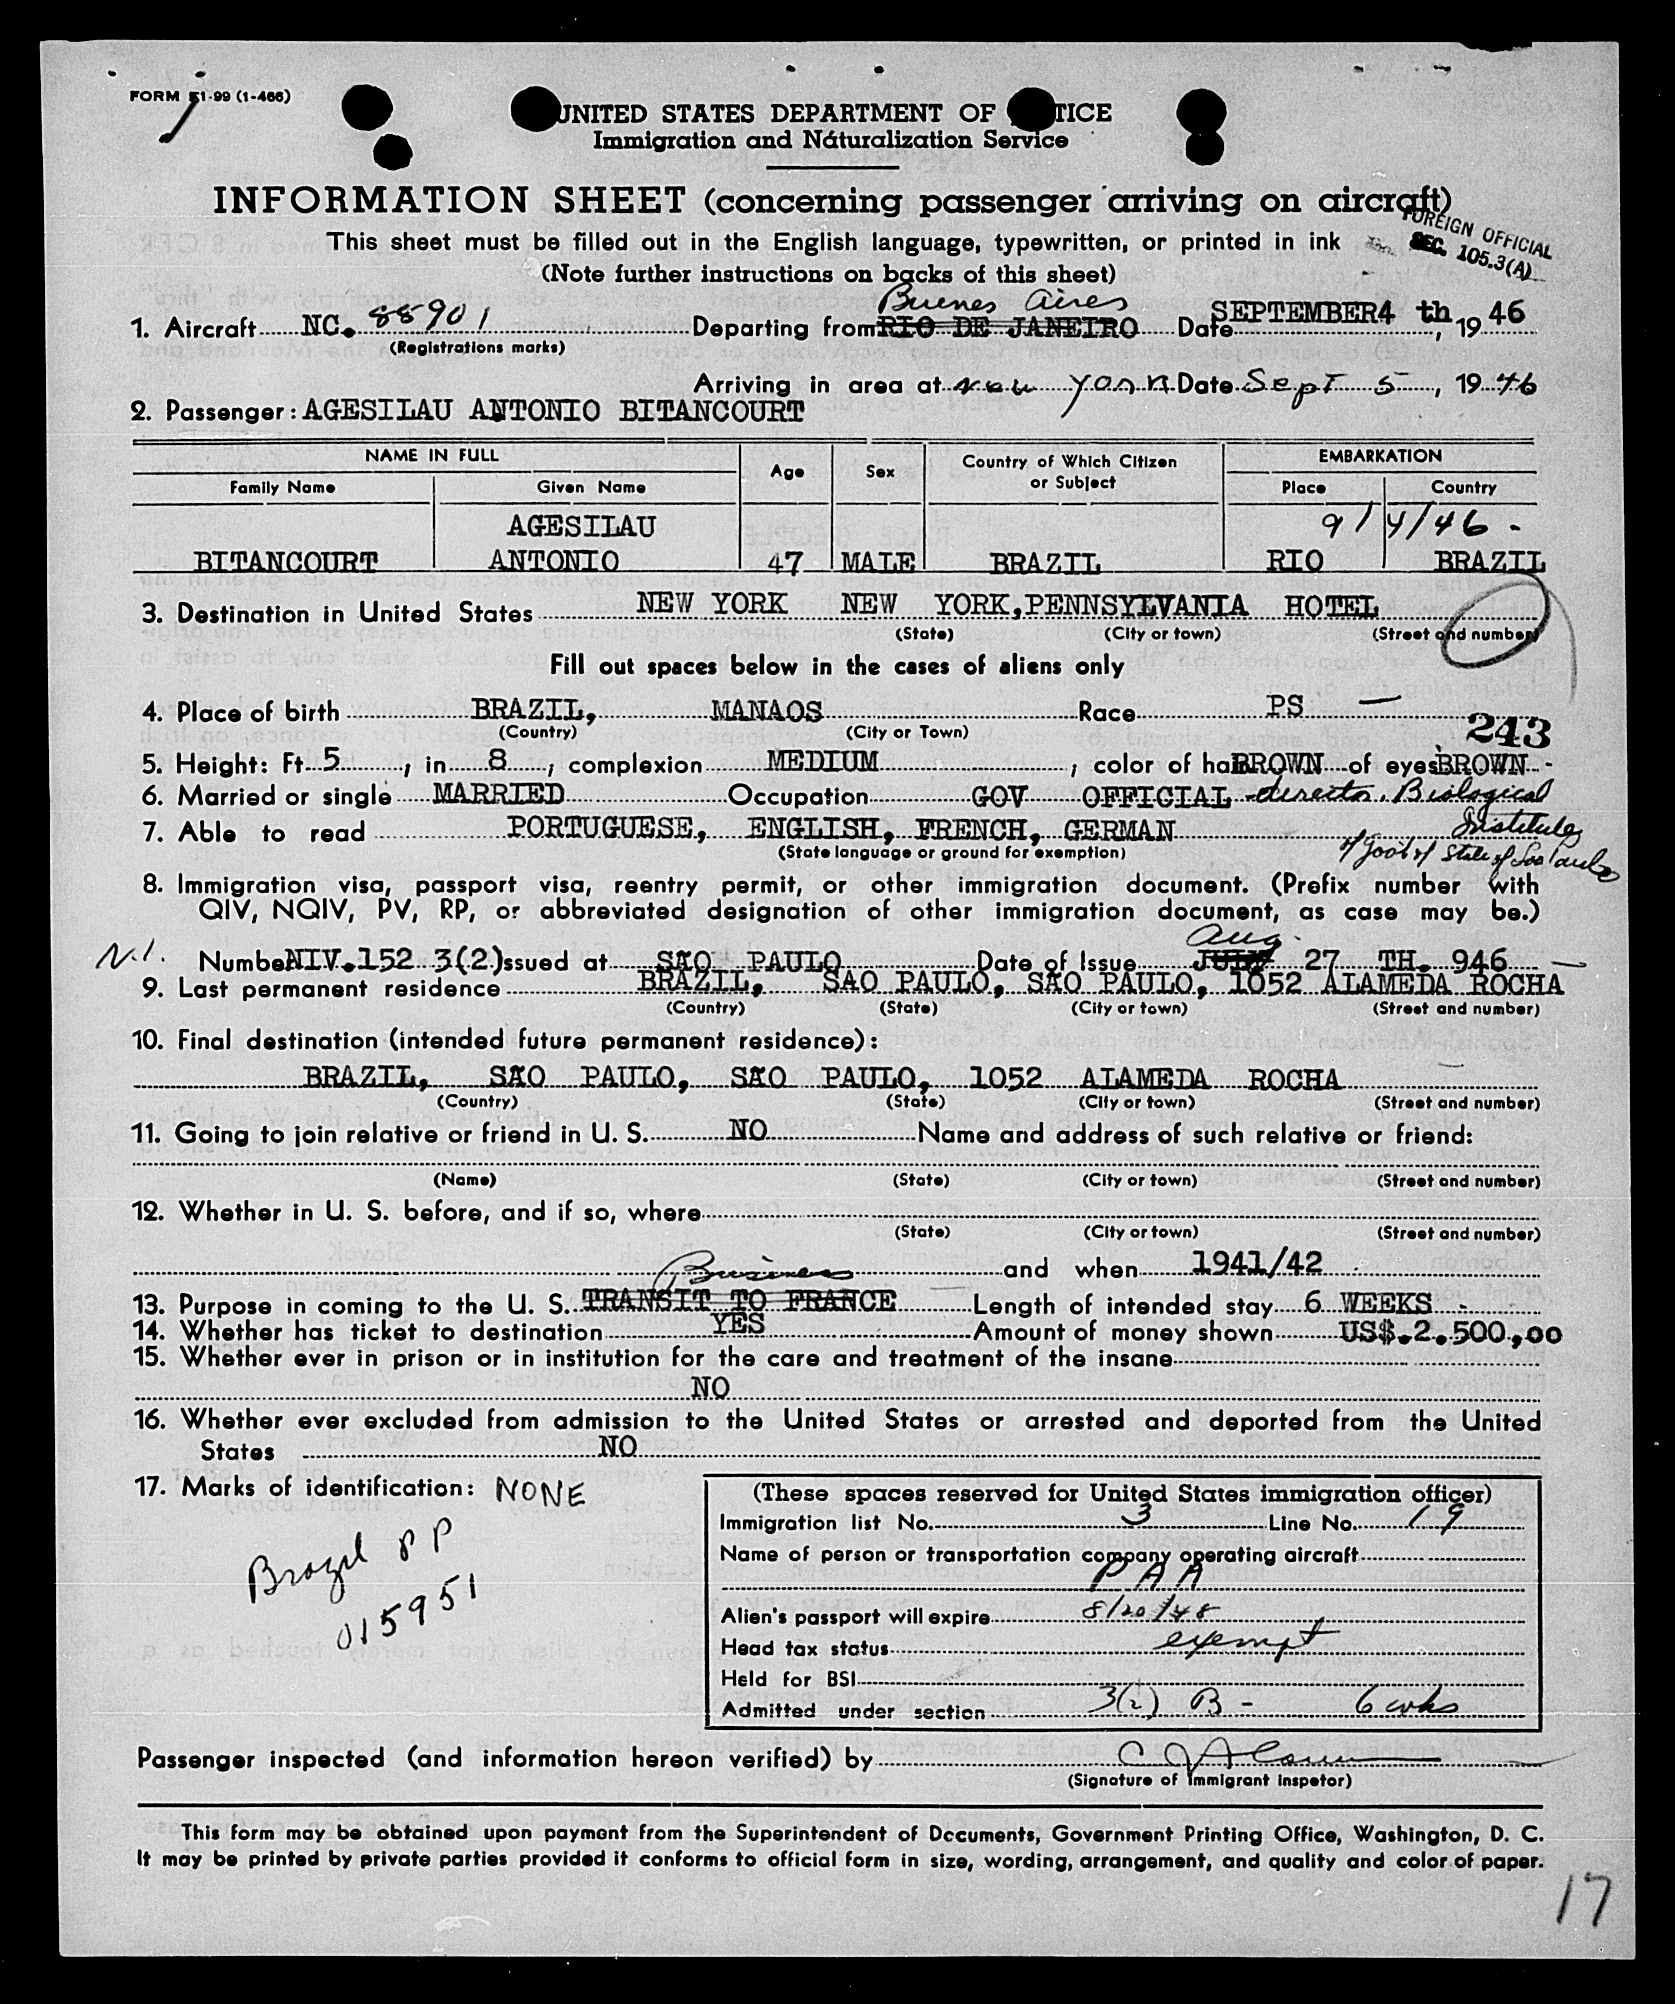 FORM I-99 (1-466)
UNITED STATES DEPARTMENT OF TICE
Immigration and Naturalization Service
INFORMATION SHEET (concerning passenger arriving on aircraft)
This sheet must be filled out in the English language, typewritten, or printed in ink
FOREIGN OFFICIAL
SEC. 105.3(A)
(Note further instructions on backs of this sheet)
Buenes Aires
1. Aircraft NC. 88901 Departing from RIO DE JANEIRO Date SEPTEMBER4 th, 19 46
(Registrations marks)
Arriving in area at New York Date Sept 5, 19 46
2. Passenger: AGESILAU ANTONIO BITANCOURT
NAME IN FULL Age Sex Country of Which Citizen or Subject EMBARKATION
Family Name Given Name Place Country
AGESILAU 9/4/46 -
BITANCOURT ANTONIO 47 MALE BRAZIL RIO BRAZIL
3. Destination in United States NEW YORK NEW YORK, PENNSYLVANIA HOTEL
(State) (City or town) (Street and number)
Fill out spaces below in the cases of aliens only
4. Place of birth BRAZIL, MANAOS Race PS —
(Country) (City or Town)
243
5. Height: Ft. 5, in 8; complexion MEDIUM; color of hair BROWN of eyes BROWN -
6. Married or single MARRIED Occupation GOV OFFICIAL - director, Biological
7. Able to read PORTUGUESE, ENGLISH, FRENCH, GERMAN Institute
(State language or ground for exemption) of Gov't of State of Sao Paulo
8. Immigration visa, passport visa, reentry permit, or other immigration document. (Prefix number with
QIV, NQIV, PV, RP, or abbreviated designation of other immigration document, as case may be.)
Aug.
N.I. Number NIV.152 3(2) Issued at SÃO PAULO Date of Issue JULY 27 TH. 946 —
9. Last permanent residence BRAZIL, SÃO PAULO, SÃO PAULO, 1052 ALAMEDA ROCHA
(Country) (State) (City or town) (Street and number)
10. Final destination (intended future permanent residence):
BRAZIL, SÃO PAULO, SÃO PAULO, 1052 ALAMEDA ROCHA
(Country) (State) (City or town) (Street and number)
11. Going to join relative or friend in U. S. NO Name and address of such relative or friend:
(Name) (State) (City or town) (Street and number)
12. Whether in U. S. before, and if so, where
(State) (City or town) (Street and number)
and when 1941/42
Business
13. Purpose in coming to the U. S. TRANSIT TO FRANCE Length of intended stay 6 WEEKS -
14. Whether has ticket to destination YES Amount of money shown US$.2.500,00
15. Whether ever in prison or in institution for the care and treatment of the insane
NO
16. Whether ever excluded from admission to the United States or arrested and deported from the United
States NO
17. Marks of identification: NONE
Brazil PP
015951
(These spaces reserved for United States immigration officer)
Immigration list No. 3 Line No. 19
Name of person or transportation company operating aircraft
PAA
Alien's passport will expire 8/20/48
Head tax status exempt
Held for BSI
Admitted under section 3(2) B - 6 wks
Passenger inspected (and information hereon verified) by
(Signature of Immigrant Inspetor)
This form may be obtained upon payment from the Superintendent of Documents, Government Printing Office, Washington, D. C.
It may be printed by private parties provided it conforms to official form in size, wording, arrangement, and quality and color of paper.
17